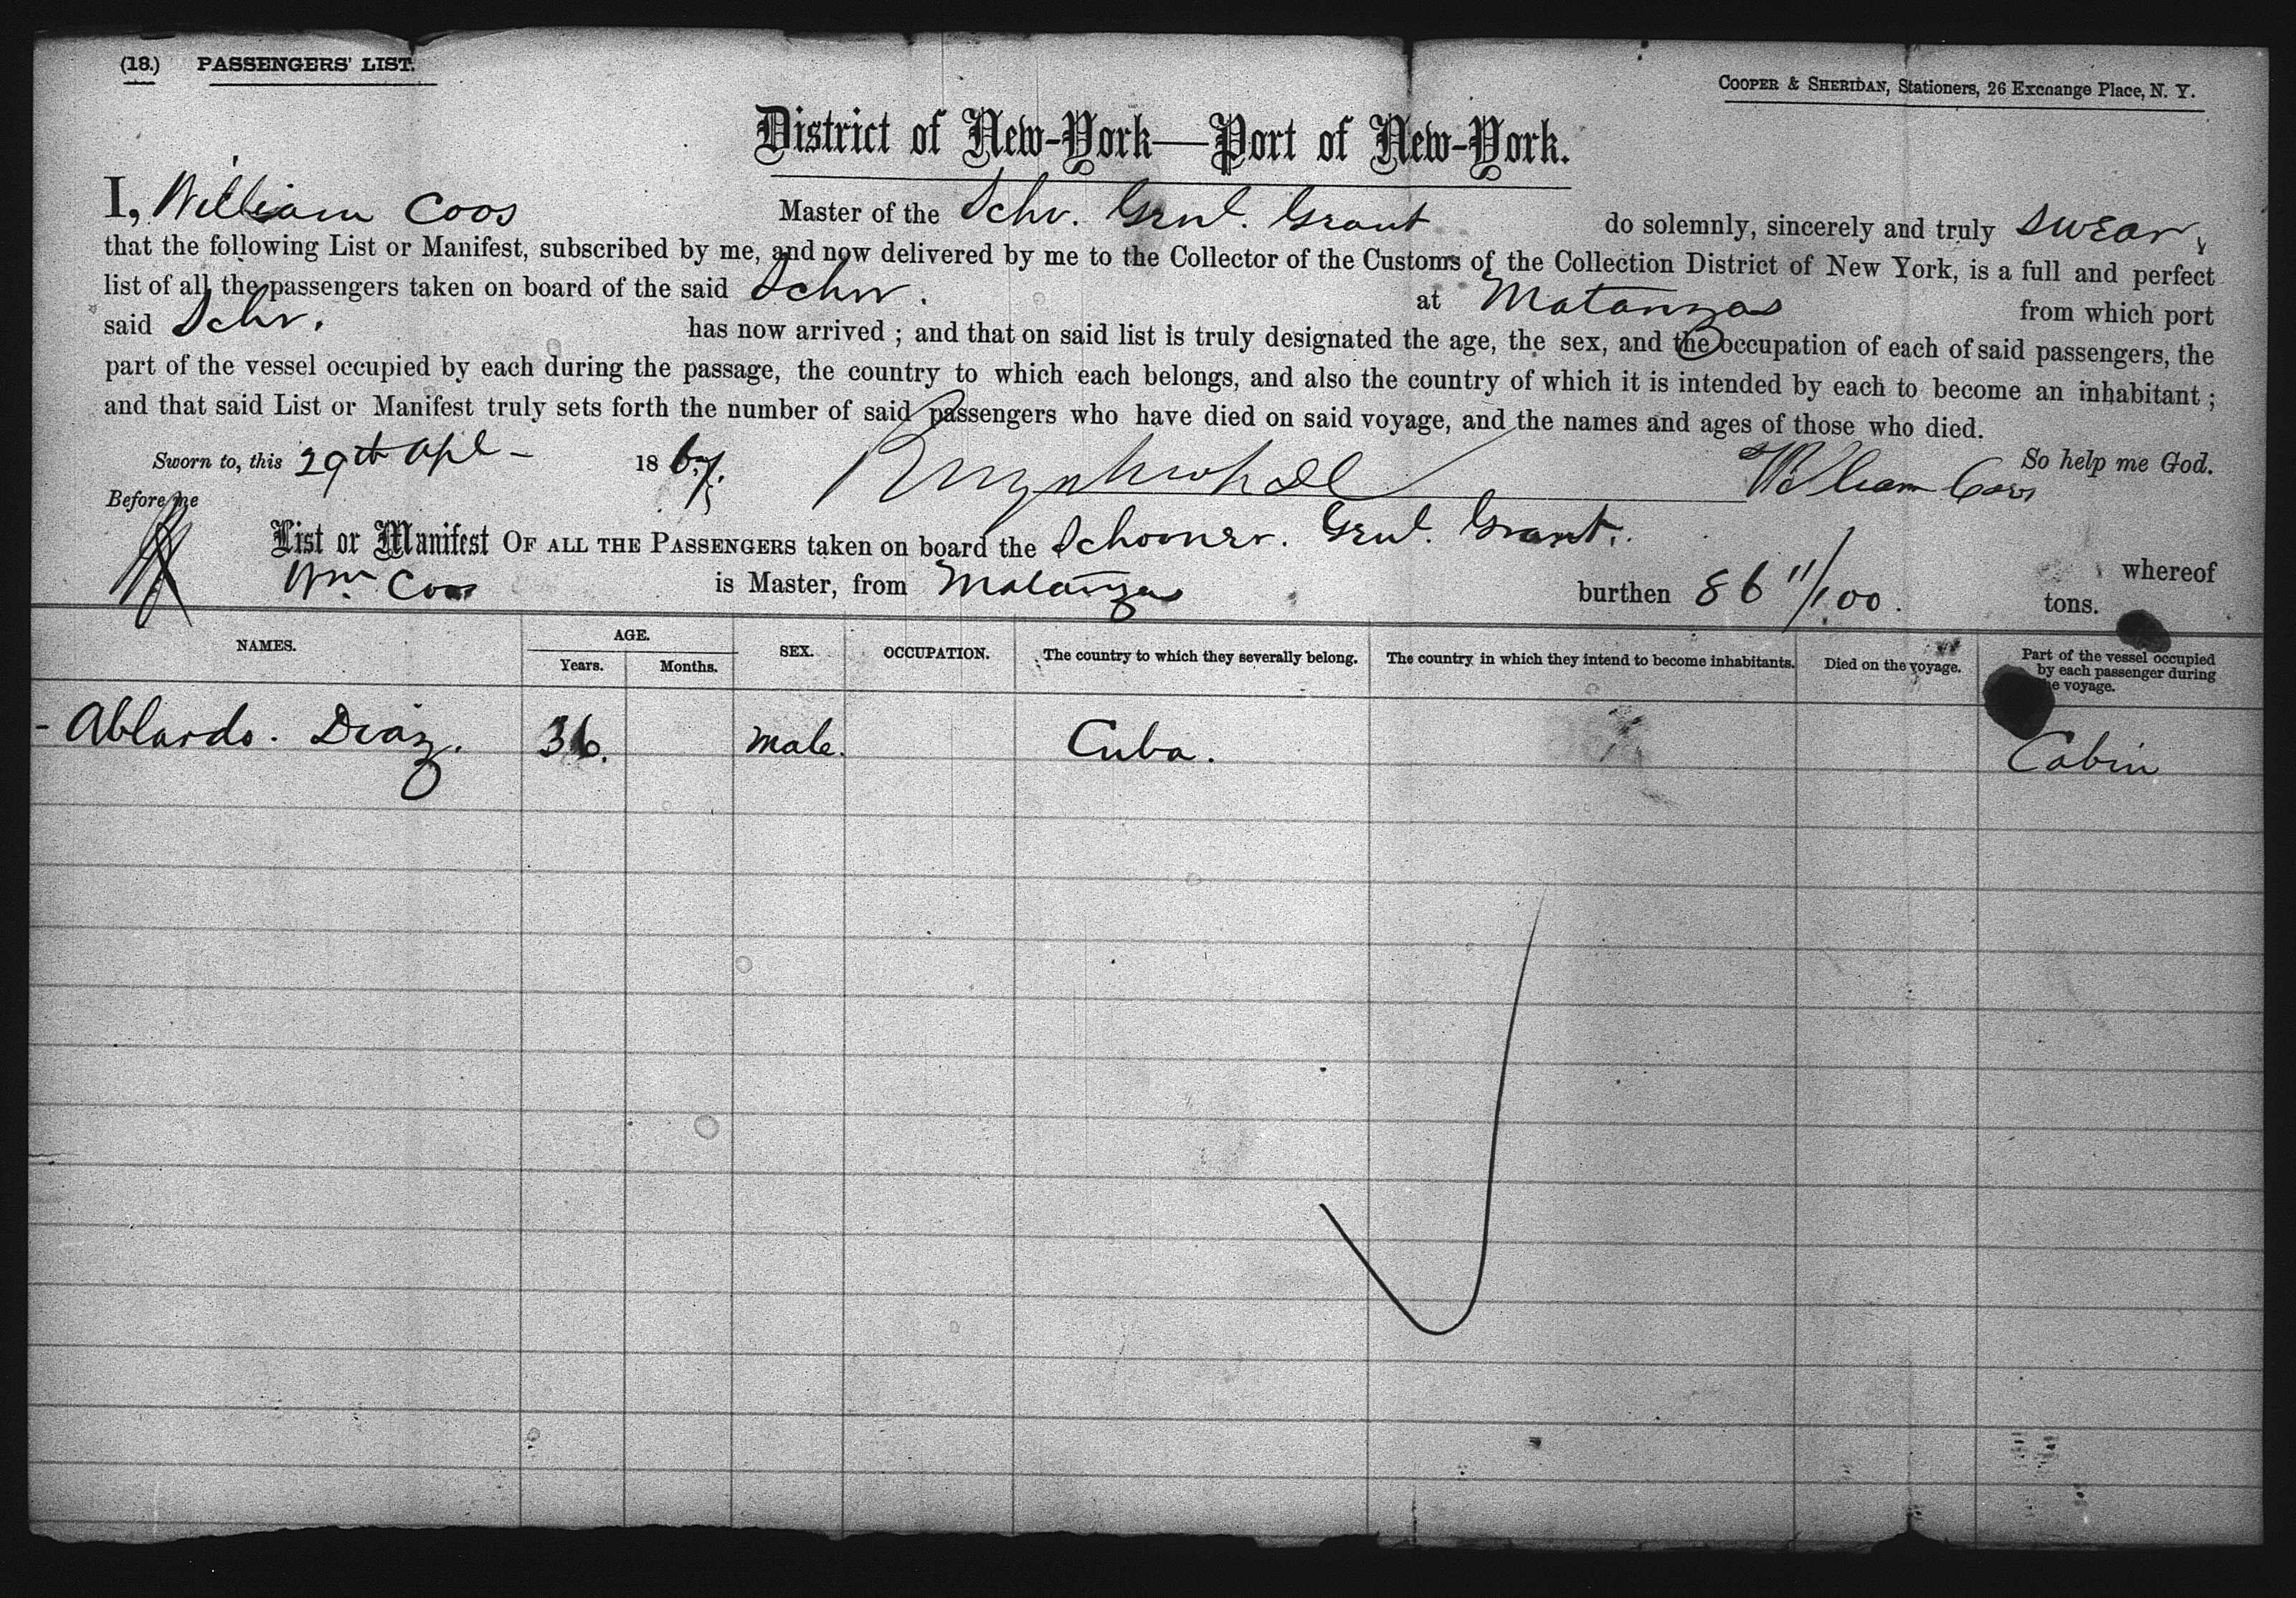 (18.) PASSENGERS' LIST.
COOPER & SHERIDAN, Stationers, 26 Exchange Place, N. Y.
District of New-York—Port of New-York.
I, William Coos Master of the Schr. Genl. Grant do solemnly, sincerely and truly swear,
that the following List or Manifest, subscribed by me, and now delivered by me to the Collector of the Customs of the Collection District of New York, is a full and perfect
list of all the passengers taken on board of the said Schr. at Matanzas from which port
said Schr. has now arrived ; and that on said list is truly designated the age, the sex, and the occupation of each of said passengers, the
part of the vessel occupied by each during the passage, the country to which each belongs, and also the country of which it is intended by each to become an inhabitant ;
and that said List or Manifest truly sets forth the number of said passengers who have died on said voyage, and the names and ages of those who died.
Sworn to, this 29th Apl - 1867. William Coos So help me God.
Before me
List or Manifest OF ALL THE PASSENGERS taken on board the Schooner. Genl. Grant. whereof
Wm Coos is Master, from Matanzas burthen 86 11/100. tons.
NAMES. AGE. Years. Months. SEX. OCCUPATION. The country to which they severally belong. The country in which they intend to become inhabitants. Died on the voyage. Part of the vessel occupied by each passenger during the voyage.
- Ablardo. Diaz. 36. Male. Cuba. Cabin